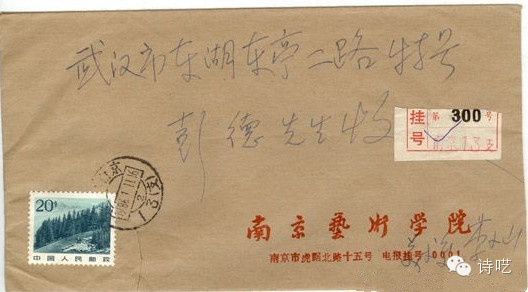 武汉市东湖东亭二路特号
彭德先生收
挂号
第 300 号
13支
南京
20分
中国人民邮政
南京藝術学院
南京市虎踞北路十五号 电报挂号 0001
诗呓